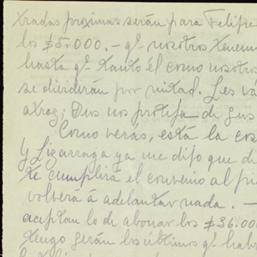 tradas proximas serán para Felipe
los $50.000.- qº nosotros tenem
hasta qº tanto él como nosotro
se dividirán por mitad. Les va
atraz; Dios nos proteja de sus
Como verás, está la cos
y Lizarraga ya me dijo que de
te cumplirá el convenio al pi
volverá á adelantar nada. -
aceptan lo de abonar los $36.00
tengo serán los últimos qº hab